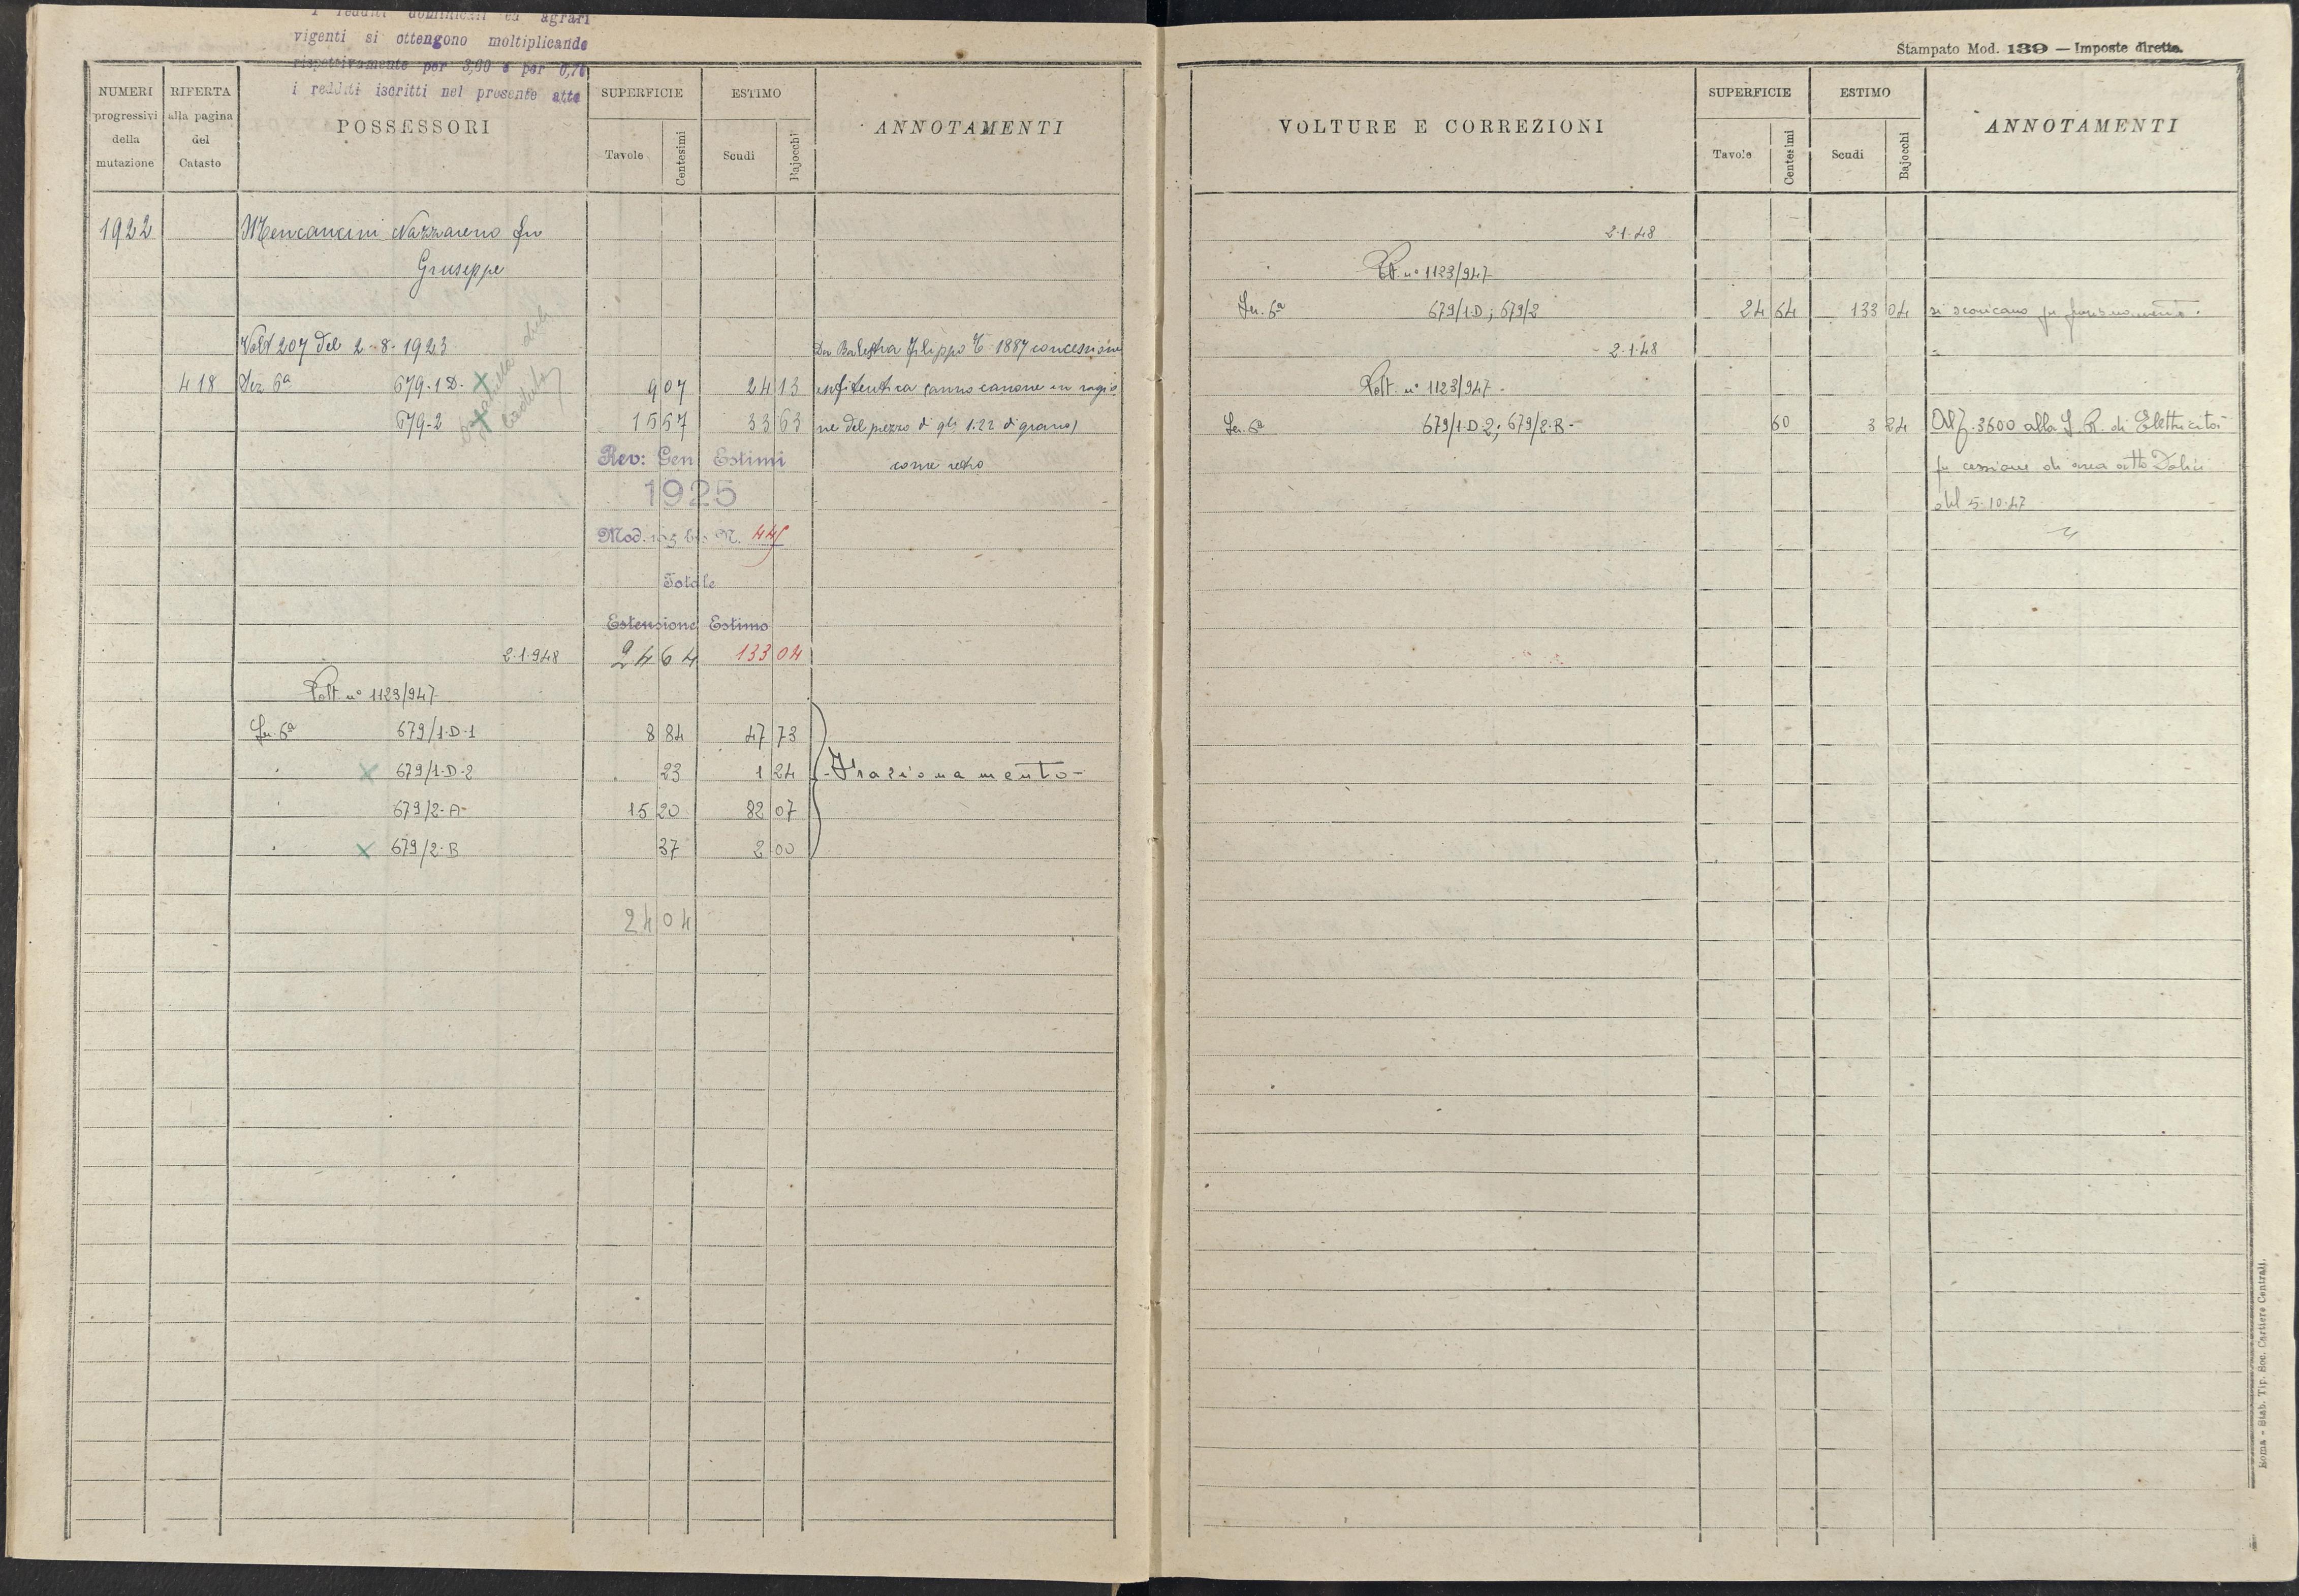 i redditi dominicali ed agrari
vigenti si ottengono moltiplicando
rispettivamente per 3,60 e per 0,70
i redditi iscritti nel presente atto
NUMERI progressivi della mutazione
RIFERTA alla pagina del Catasto
POSSESSORI
SUPERFICIE
Tavole Centesimi
ESTIMO
Scudi Bajocchi
ANNOTAMENTI
1922 Mencancini Nazzareno fu
Giuseppe
Volt 207 del 2-8-1923 Da Balestra Filippo T. 1887 concessione
418 Sez 6ª 679-1 D. 9 07 24 13 enfiteutica (annuo canone in ragio
679-2 15 57 33 63 ne del prezzo di qli 1.22 di grano)
Rev: Gen Estimi come retro
1925
Mod. 103 bis N. 445
Totale
Estensione Estimo
2.1.948 24 64 133 04
Volt. nº 1123/947
Sez. 6ª 679/1-D-1 8 84 47 73
679/1-D-2 23 1 24 - Frazionamento -
679/2-A- 15 20 82 07
679/2-B 37 2 00
24 04
Stampato Mod. 139 — Imposte dirette.
VOLTURE E CORREZIONI
SUPERFICIE
Tavole Centesimi
ESTIMO
Scudi Bajocchi
ANNOTAMENTI
2.1.48
Volt. nº 1123/947
Sez. 6ª 679/1-D; 679/2 24 64 133 04 si scaricano per frazionamento.
- 2.1.48
Volt. nº 1123/947 -
Sez. 6ª 679/1-D-2; 679/2-B- 60 3 24 Al f. 3600 alla S. R. di Elettricità
per cessione di area atto Dolci
del 5-10-47
Roma - Stab. Tip. Soc. Cartiere Centrali.